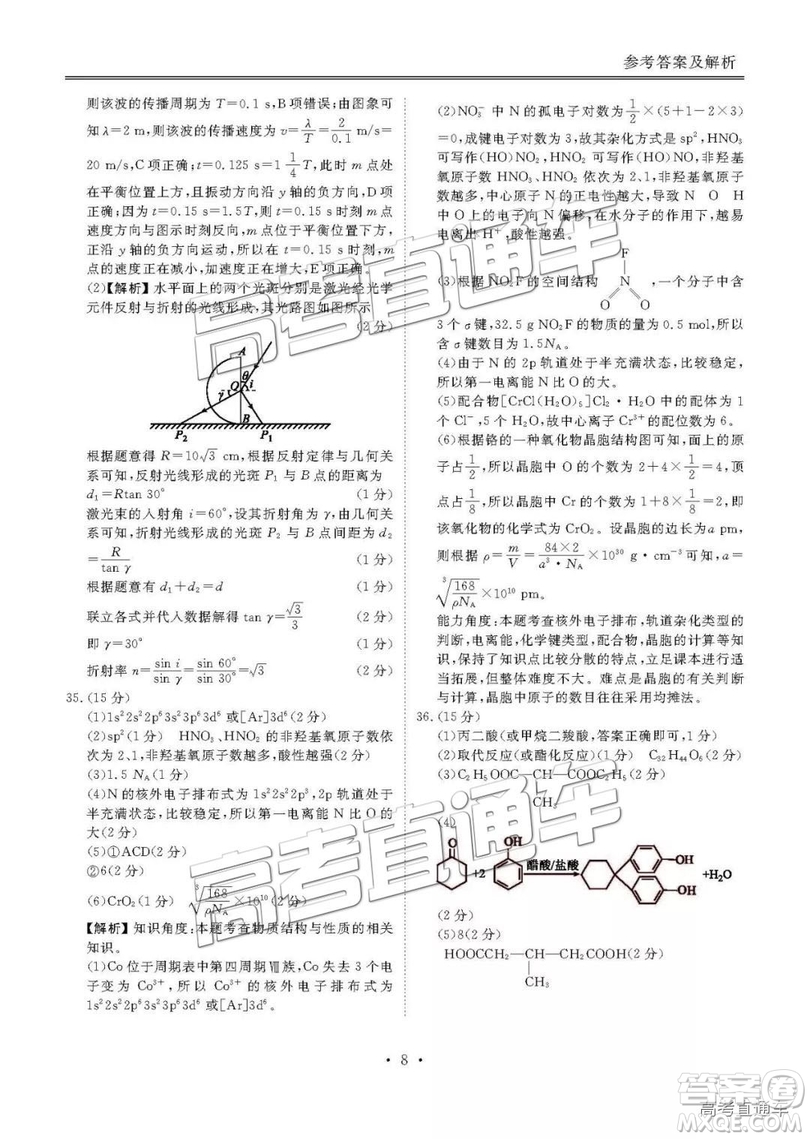 参考答案及解析
则该波的传播周期为T=0.1 s,B项错误;由图象可
知λ=2 m,所以该波的传播速度为v=λ/T=2/0.1 m/s=
20 m/s,C项正确;t=0.125 s=1 1/4 T,此时m点处
在平衡位置上方,且振动方向沿y轴的负方向,D项
正确;t=0.15 s=1.5T,则t=0.15 s时刻m点
速度方向与图示时刻反向,m点位于平衡位置下方,
正沿y轴的负方向运动,所以在t=0.15 s时刻,m
点的速度正在减小,加速度正在增大,E项正确。
(2)【解析】水平面上的两个光斑分别是激光经光学
元件反射与折射的光线形成,其光路图如图所示
(2分)
A
θ
O i
γ
B
P2 P1
根据题意得R=10√3 cm,根据反射定律与几何关
系可知,反射光线形成的光斑P1与B点的距离为
d1=Rtan 30° (1分)
激光束的入射角i=60°,设其折射角为γ,由几何关
系可知,折射光线形成的光斑P2与B点间距为d2
=R/tan γ (1分)
根据题意有d1+d2=d (1分)
联立各式并代入数据解得tan γ=√3/3 (2分)
即γ=30° (1分)
折射率n=sin i/sin γ=sin 60°/sin 30°=√3 (2分)
35.(15分)
(1)1s²2s²2p⁶3s²3p⁶3d⁶或[Ar]3d⁶(2分)
(2)sp²(1分) HNO3、HNO2的非羟基氧原子数依
次为2、1,非羟基氧原子数越多,酸性越强(2分)
(3)1.5 NA(1分)
(4)N的核外电子排布式为1s²2s²2p³,2p轨道处于
半充满状态,比较稳定,所以第一电离能N比O的
大(2分)
(5)①ACD(2分)
②6(2分)
(6)CrO2(1分) ∛(168/ρNA)×10¹⁰(2分)
【解析】知识角度:本题考查物质结构与性质的相关
知识。
(1)Co位于周期表中第四周期Ⅷ族,Co失去3个电
子变为Co³⁺,所以Co³⁺的核外电子排布式为
1s²2s²2p⁶3s²3p⁶3d⁶或[Ar]3d⁶。
(2)NO3⁻中N的孤电子对数为1/2×(5+1-2×3)
=0,成键电子对数为3,故其杂化方式是sp²,HNO3
可写作(HO)NO2,HNO2可写作(HO)NO,非羟基
氧原子数HNO3、HNO2依次为2、1,非羟基氧原子
数越多,中心原子的正电性越大,导致N O H
中O上的电子向N偏移,在水分子的作用下,越易
电离出H⁺,酸性越强。
F
(3)根据NO2F的空间结构 N ,一个分子中含
O O
3个σ键,32.5 g NO2F的物质的量为0.5 mol,故其
含σ键数目为1.5NA。
(4)由于N的2p轨道处于半充满状态,比较稳定,
所以第一电离能N比O的大。
(5)配合物[CrCl(H2O)5]Cl2·H2O中的配体为1
个Cl⁻,5个H2O,故中心离子Cr³⁺的配位数为6。
(6)根据铬的一种氧化物晶胞结构图可知,面上的原
子占1/2,所以晶胞中O的个数为2+4×1/2=4,顶
点占1/8,所以晶胞中Cr的个数为1+8×1/8=2,故
该氧化物的化学式为CrO2。设晶胞的边长为a pm,
则根据ρ=m/V=84×2/(a³·NA)×10³⁰ g·cm⁻³可知,a=
∛(168/ρNA)×10¹⁰ pm。
能力角度:本题考查核外电子排布,轨道杂化类型的
判断,电离能,化学键类型,配合物,晶胞的计算等知
识。体现了知识点比较分散的特点,立足课本进行
适当拓展,但整体难度不大。难点是晶胞的有关判断
与计算,晶胞中原子的数目往往采用均摊法。
36.(15分)
(1)丙二酸(或甲烷二羧酸,答案正确即可,1分)
(2)取代反应(或酯化反应)(2分) C32H44O8(2分)
(3)C2H5OOC—CH—COOC2H5(2分)
CH3
(4)
O +2 OH 醋酸/盐酸 OH OH +H2O
(2分)
(5)8(2分)
HOOCCH2—CH—CH2COOH(2分)
CH3
· 8 ·
高考直通车
高考直通车
答案圈
高考直通车
MXQE.COM